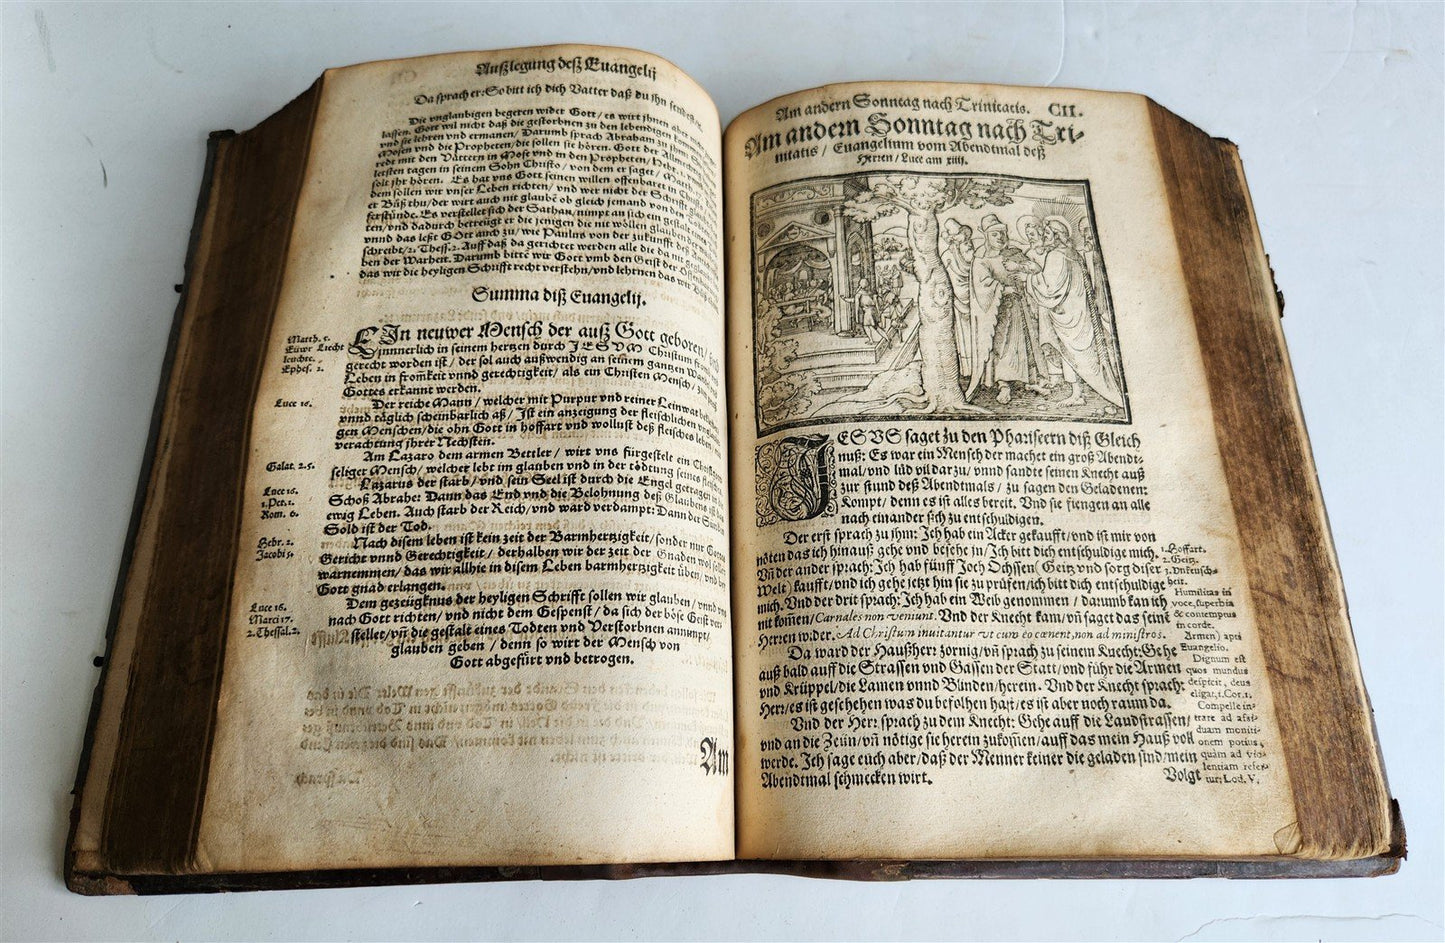 Außlegung deß Euangelij
Da sprach er: So bitt ich dich Vatter daß du jhn sendest
Die vnglaubigen begeren wider Gott / es wirt jhnen aber
lassen. Gott wil nicht daß die gestorbnen zu den lebendigen
vnd sie lehren vnd ermanen / Darumb sprach Abraham zu jhm
Mosen vnd die Propheten / die sollen sie hören. Gott der Allmech
redt mit den Vättern in Mose vnd in den Propheten / Hebr. 1.
letsten tagen in seinem Sohn Christo / von dem er saget / Matth.
solt jhr hören. Es hat vns Gott seinen willen offenbaret in
dem sollen wir vnser Leben richten / vnd wer nicht der Schrifft
er Büß thu / der wirt auch nit glaubē ob gleich jemand von den
ferstünde. Es verstellet sich der Sathan / nimpt an sich ein gestalt
ten / vnd dadurch betreügt er die jenigen die nit wöllen glauben
vnnd das leßt GOtt auch zu / wie Paulus von der zukunfft deß
schreibt / 2. Thess. 2. Auff daß da gerichtet werden alle die da nit
ben der Warheit. Darumb bitte wir Gott vmb den Geist der
das wir die heyligen Schrifft recht verstehn / vnd lehrnen das wir
Summa diß Euangelij.
EIn neuwer Mensch der auß Gott geboren /
jnnnerlich in seinem hertzen durch JESVM Christum
gerecht worden ist / der sol auch außwendig an seinem gantzen
Leben in from̄keit vnnd gerechtigkeit / als ein Christen Mensch /
Gottes erkannt werden.
Matth. 5.
Euwr Liecht
leuchte.
Ephes. 2.
Der reiche Mann / welcher mit Purpur vnd reiner Leinwat
vnnd täglich scheinbarlich aß / Ist ein anzeigung der fleischlichen
gen Menschen / die ohn Gott in hoffart vnd wollust deß fleisches leben
verachtung jhrer Nechsten.
Luce 16.
Am Lazaro dem armen Bettler / wirt vns fürgestelt ein
seliger Mensch / welcher lebt im glauben vnd in der tödtung seines
Galat. 2. 5.
Lazarus der starb / vnd sein Seel ist durch die Engel getragen
Schoß Abrahe: Dann das End vnd die Belohnung deß Glaubens ist
ewig Leben. Auch starb der Reich / vnd ward verdampt: Dann der
Sold ist der Tod.
Luce 16.
1. Pet. 1.
Rom. 6.
Nach disem leben ist kein zeit der Barmhertzigkeit / sonder nur
Gericht vnnd Gerechtigkeit / derhalben wir der zeit der Gnaden
warnemmen / das wir allhie in disem Leben barmhertzigkeit üben / vnd bey
Gott gnad erlangen.
Hebr. 2.
Jacobi 5.
Dem gezeügknus der heyligen Schrifft sollen wir glauben /
nach Gott richten / vnd nicht dem Gespenst / da sich der böse Geist
stellet / vn̄ die gestalt eines Todten vnd Verstorbnen annimpt /
glauben geben / denn so wirt der Mensch von
Gott abgefürt vnd betrogen.
Luce 16.
Marci 17.
2. Thessal. 2.
Am
Am andern Sonntag nach Trinitatis. CII.
Am andern Sonntag nach Tri-
nitatis / Euangelium vom Abendtmal deß
Herren / Luce am xiiij.
JESVS saget zu den Phariseern diß Gleich
nuß: Es war ein Mensch der machet ein groß Abendt-
mal / vnd lůd vil darzu / vnnd sandte seinen Knecht auß
zur stund deß Abendtmals / zu sagen den Geladenen:
Kompt / denn es ist alles bereit. Vnd sie fiengen an alle
nach einander sich zu entschuldigen.
Der erst sprach zu jhm: Ich hab ein Acker gekaufft / vnd ist mir von
nöten das ich hinauß gehe vnd besehe jn / Ich bitt dich entschuldige mich.
Vn̄ der ander sprach: Ich hab fünff Joch Ochssen (Geitz vnd sorg diser
Welt) kaufft / vnd ich gehe jetzt hin sie zu prüfen / ich bitt dich entschuldige
mich. Vnd der drit sprach: Ich hab ein Weib genommen / darumb kan ich
nit kom̄en / Carnales non veniunt. Vnd der Knecht kam / vn̄ saget das seinē
Herren wider. Ad Christum inuitantur vt cum eo cœnent, non ad ministros.
1. Hoffart.
2. Geitz.
3. Vnkeusch-
heit.
Humilitas in
voce, superbia
& contemptus
in corde.
Da ward der Haußherr zornig / vn̄ sprach zu seinem Knecht: Gehe
auß bald auff die Strassen vnd Gassen der Statt / vnd führ die Armen
vnd Krüppel / die Lamen vnnd Blinden / herein. Vnd der Knecht sprach:
Herr / es ist geschehen was du befolhen hast / es ist aber noch raum da.
Armen) apti
Euangelio.
Dignum est
quos mundus
despicit, deus
eligat, 1. Cor. 1.
Vnd der Herr sprach zu dem Knecht: Gehe auff die Landstrassen /
vnd an die Zeün / vn̄ nötige sie herein zukom̄en / auff das mein Hauß voll
werde. Ich sage euch aber / daß der Menner keiner die geladen sind / mein
Abendtmal schmecken wirt.
Compelle in-
trare ad assi-
duam moniti-
onem potius,
quàm ad vio-
lentiam refer-
tur, Lod. V.
Volgt